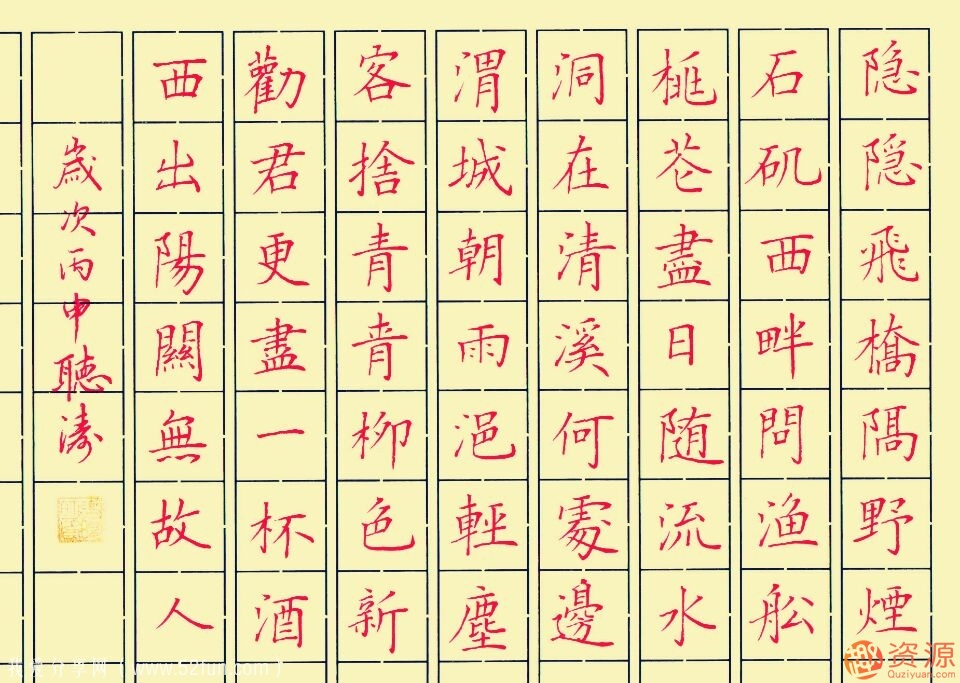 隐隐飛橋隔野煙
石矶西畔問渔舩
桃花盡日随流水
洞在清溪何處邊
渭城朝雨浥輕塵
客捨青青柳色新
勸君更盡一杯酒
西出陽關無故人
歲次丙申聽濤
趣资源
Quziyuan.com